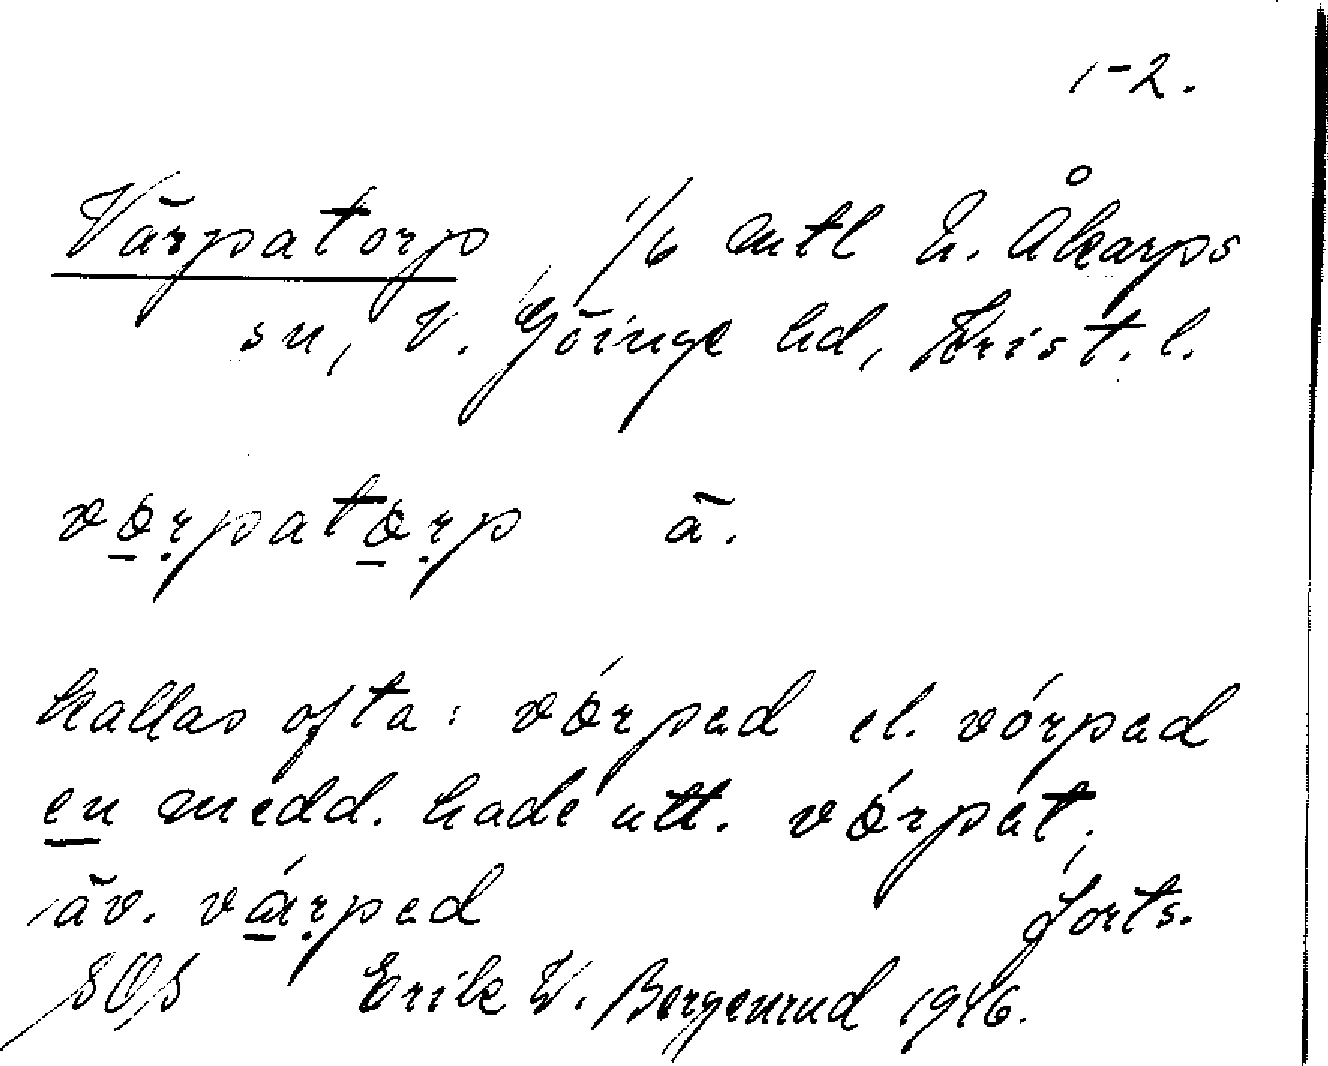 1-2.
Värpatorp, 1/6 mtl N. Åkarps
sn, V. Göinge hd, Krist. l.
vo̲ṛpato̲ṛp ä.
kallas ofta: vórpad el. vórpad
en medd. hade utt. vórpat,
äv. vǽ̲ṛpad forts.
Erik W. Bergenrud 1946.